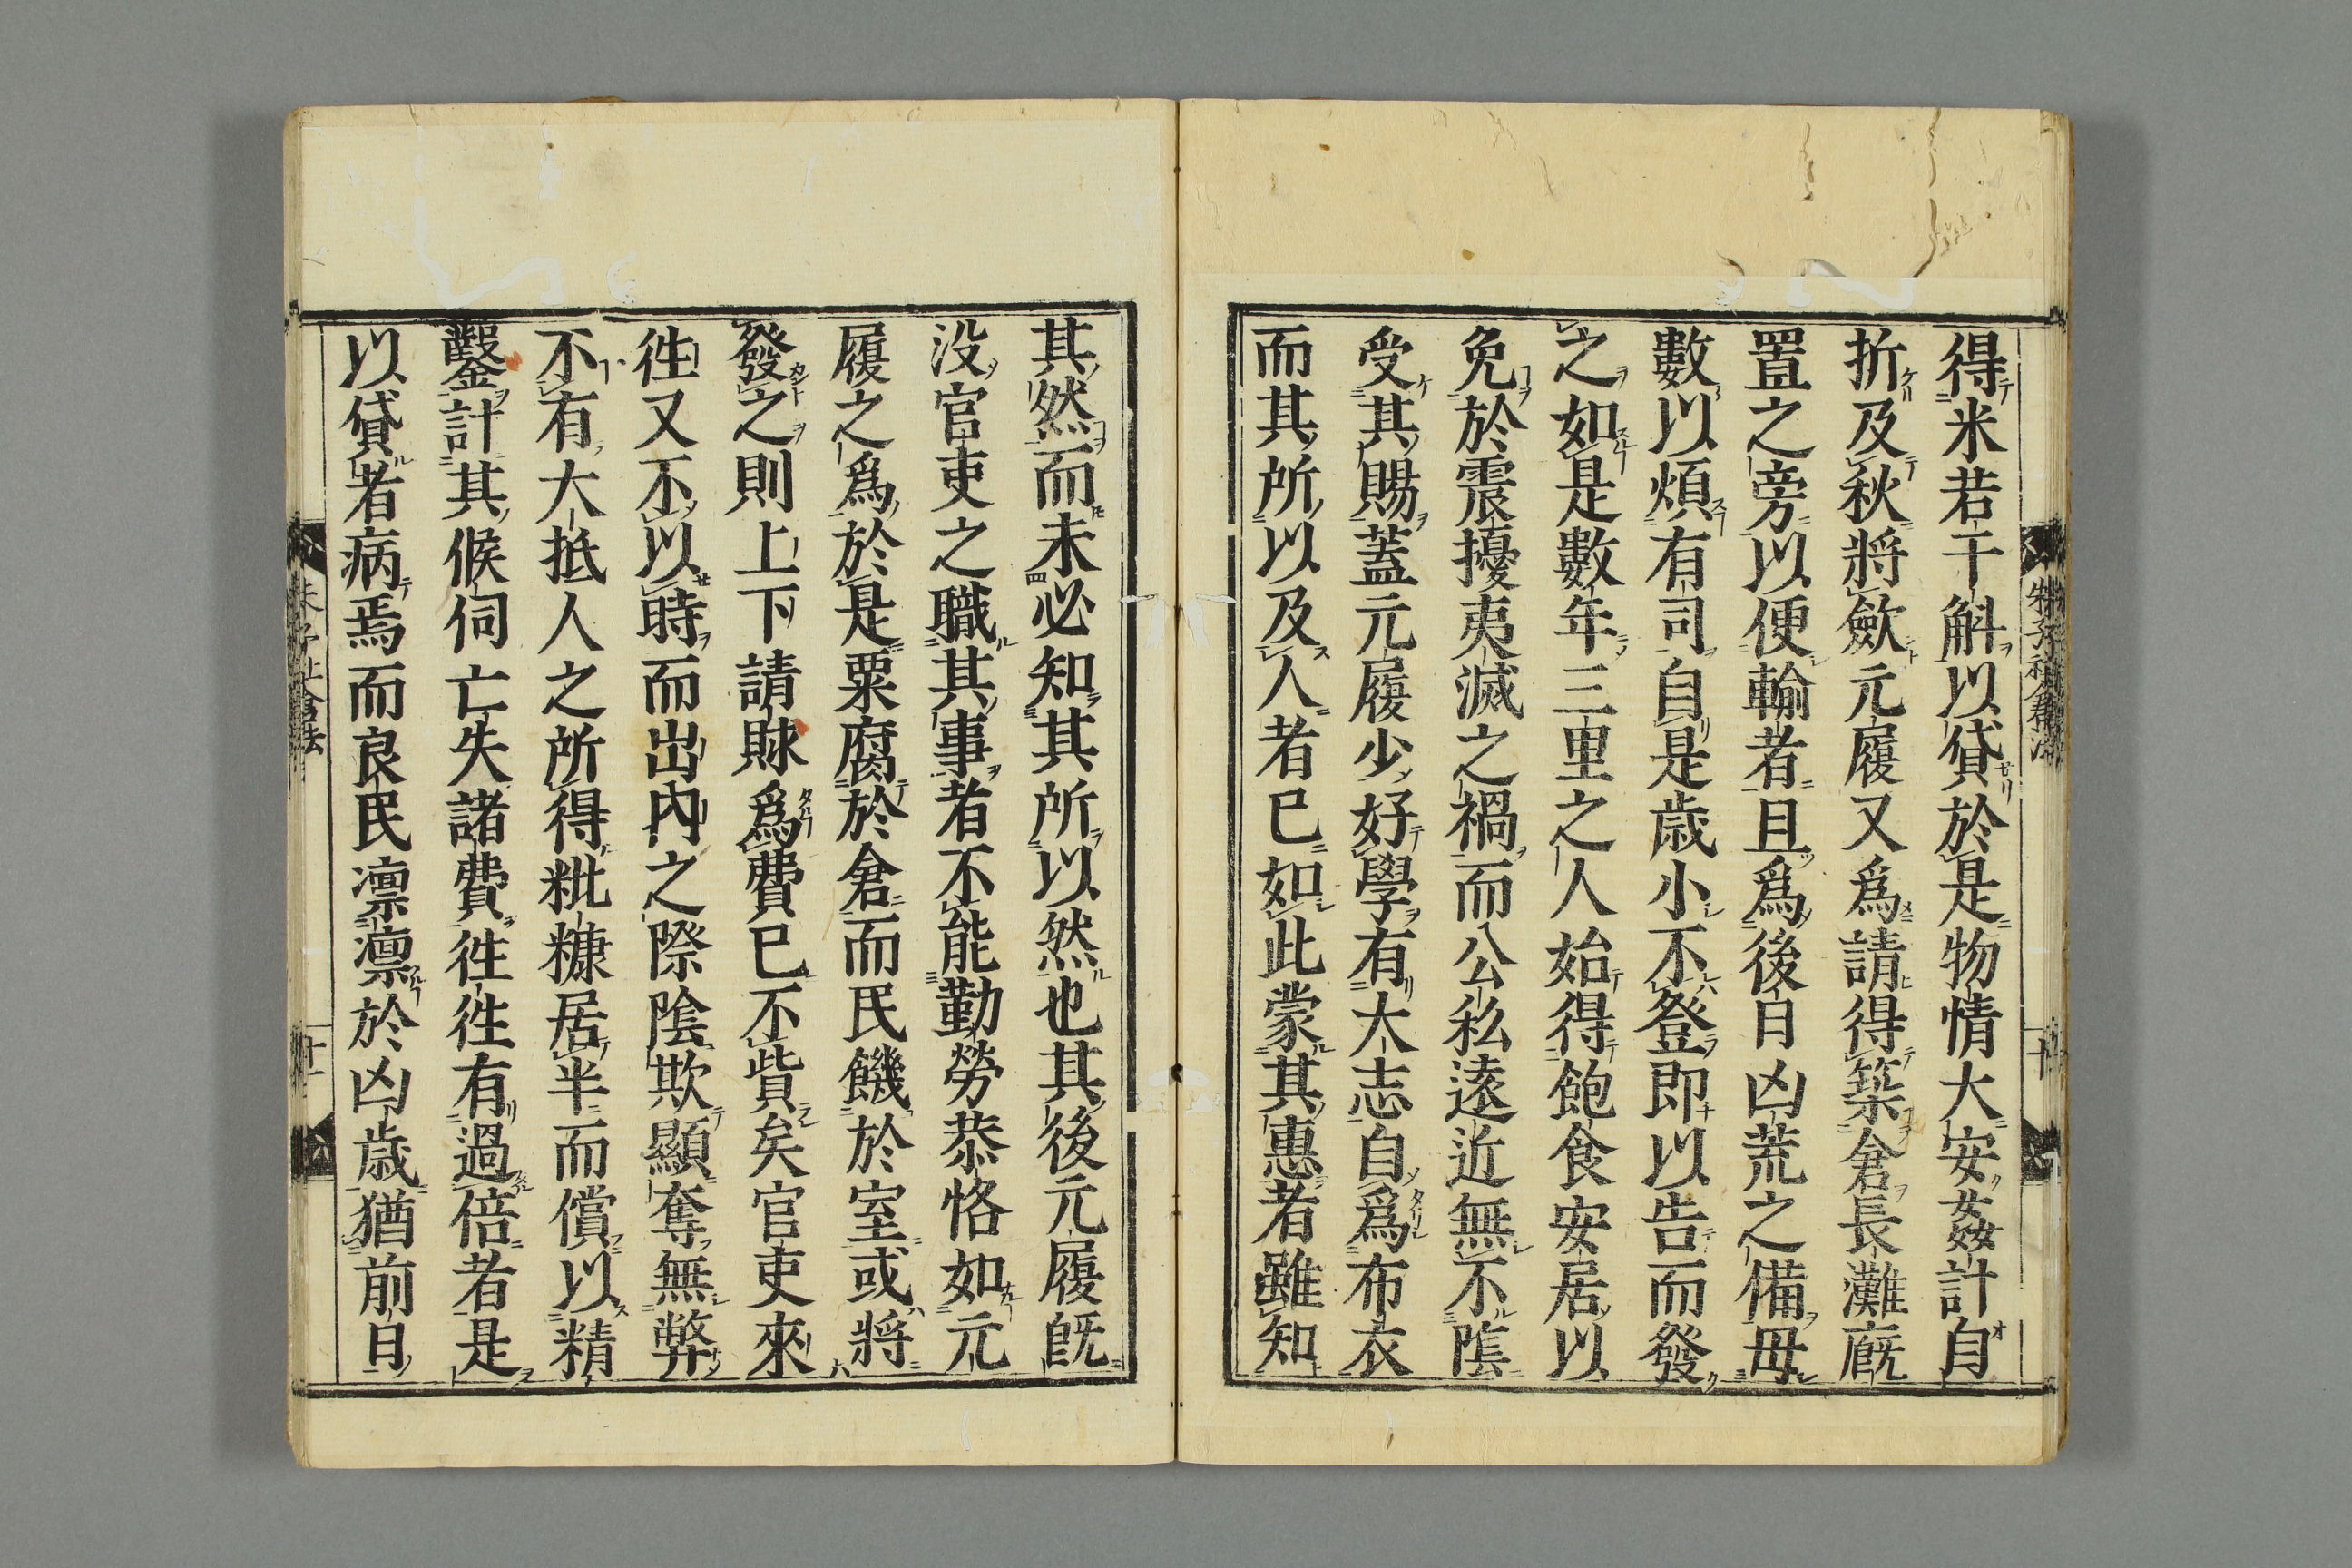 得米若干斛以貸於是物情大安姦計自
折及秋將斂元履又爲請得築倉長灘廐
置之旁以便輸者且爲後日凶荒之備毋
數以煩有司自是歳小不登即以告而發
之如是數年三里之人始得飽食安居以
免於震擾夷滅之禍而公私遠近無不陰
受其賜蓋元履少好學有大志自爲布衣
而其所以及人者已如此蒙其惠者雖知
其然而未必知其所以然也其後元履既
没官吏之職其事者不能勤勞恭恪如元
履之爲於是粟腐於倉而民饑於室或將
發之則上下請賕爲費已不貲矣官吏來
徃又不以時而出内之際陰欺顯奪無弊
不有大抵人之所得粃糠居半而償以精
鑿計其候伺亡失諸費徃徃有過倍者是
以貸者病焉而良民凛凛於凶歳猶前日
朱子社倉法
十
朱子社倉法
十一